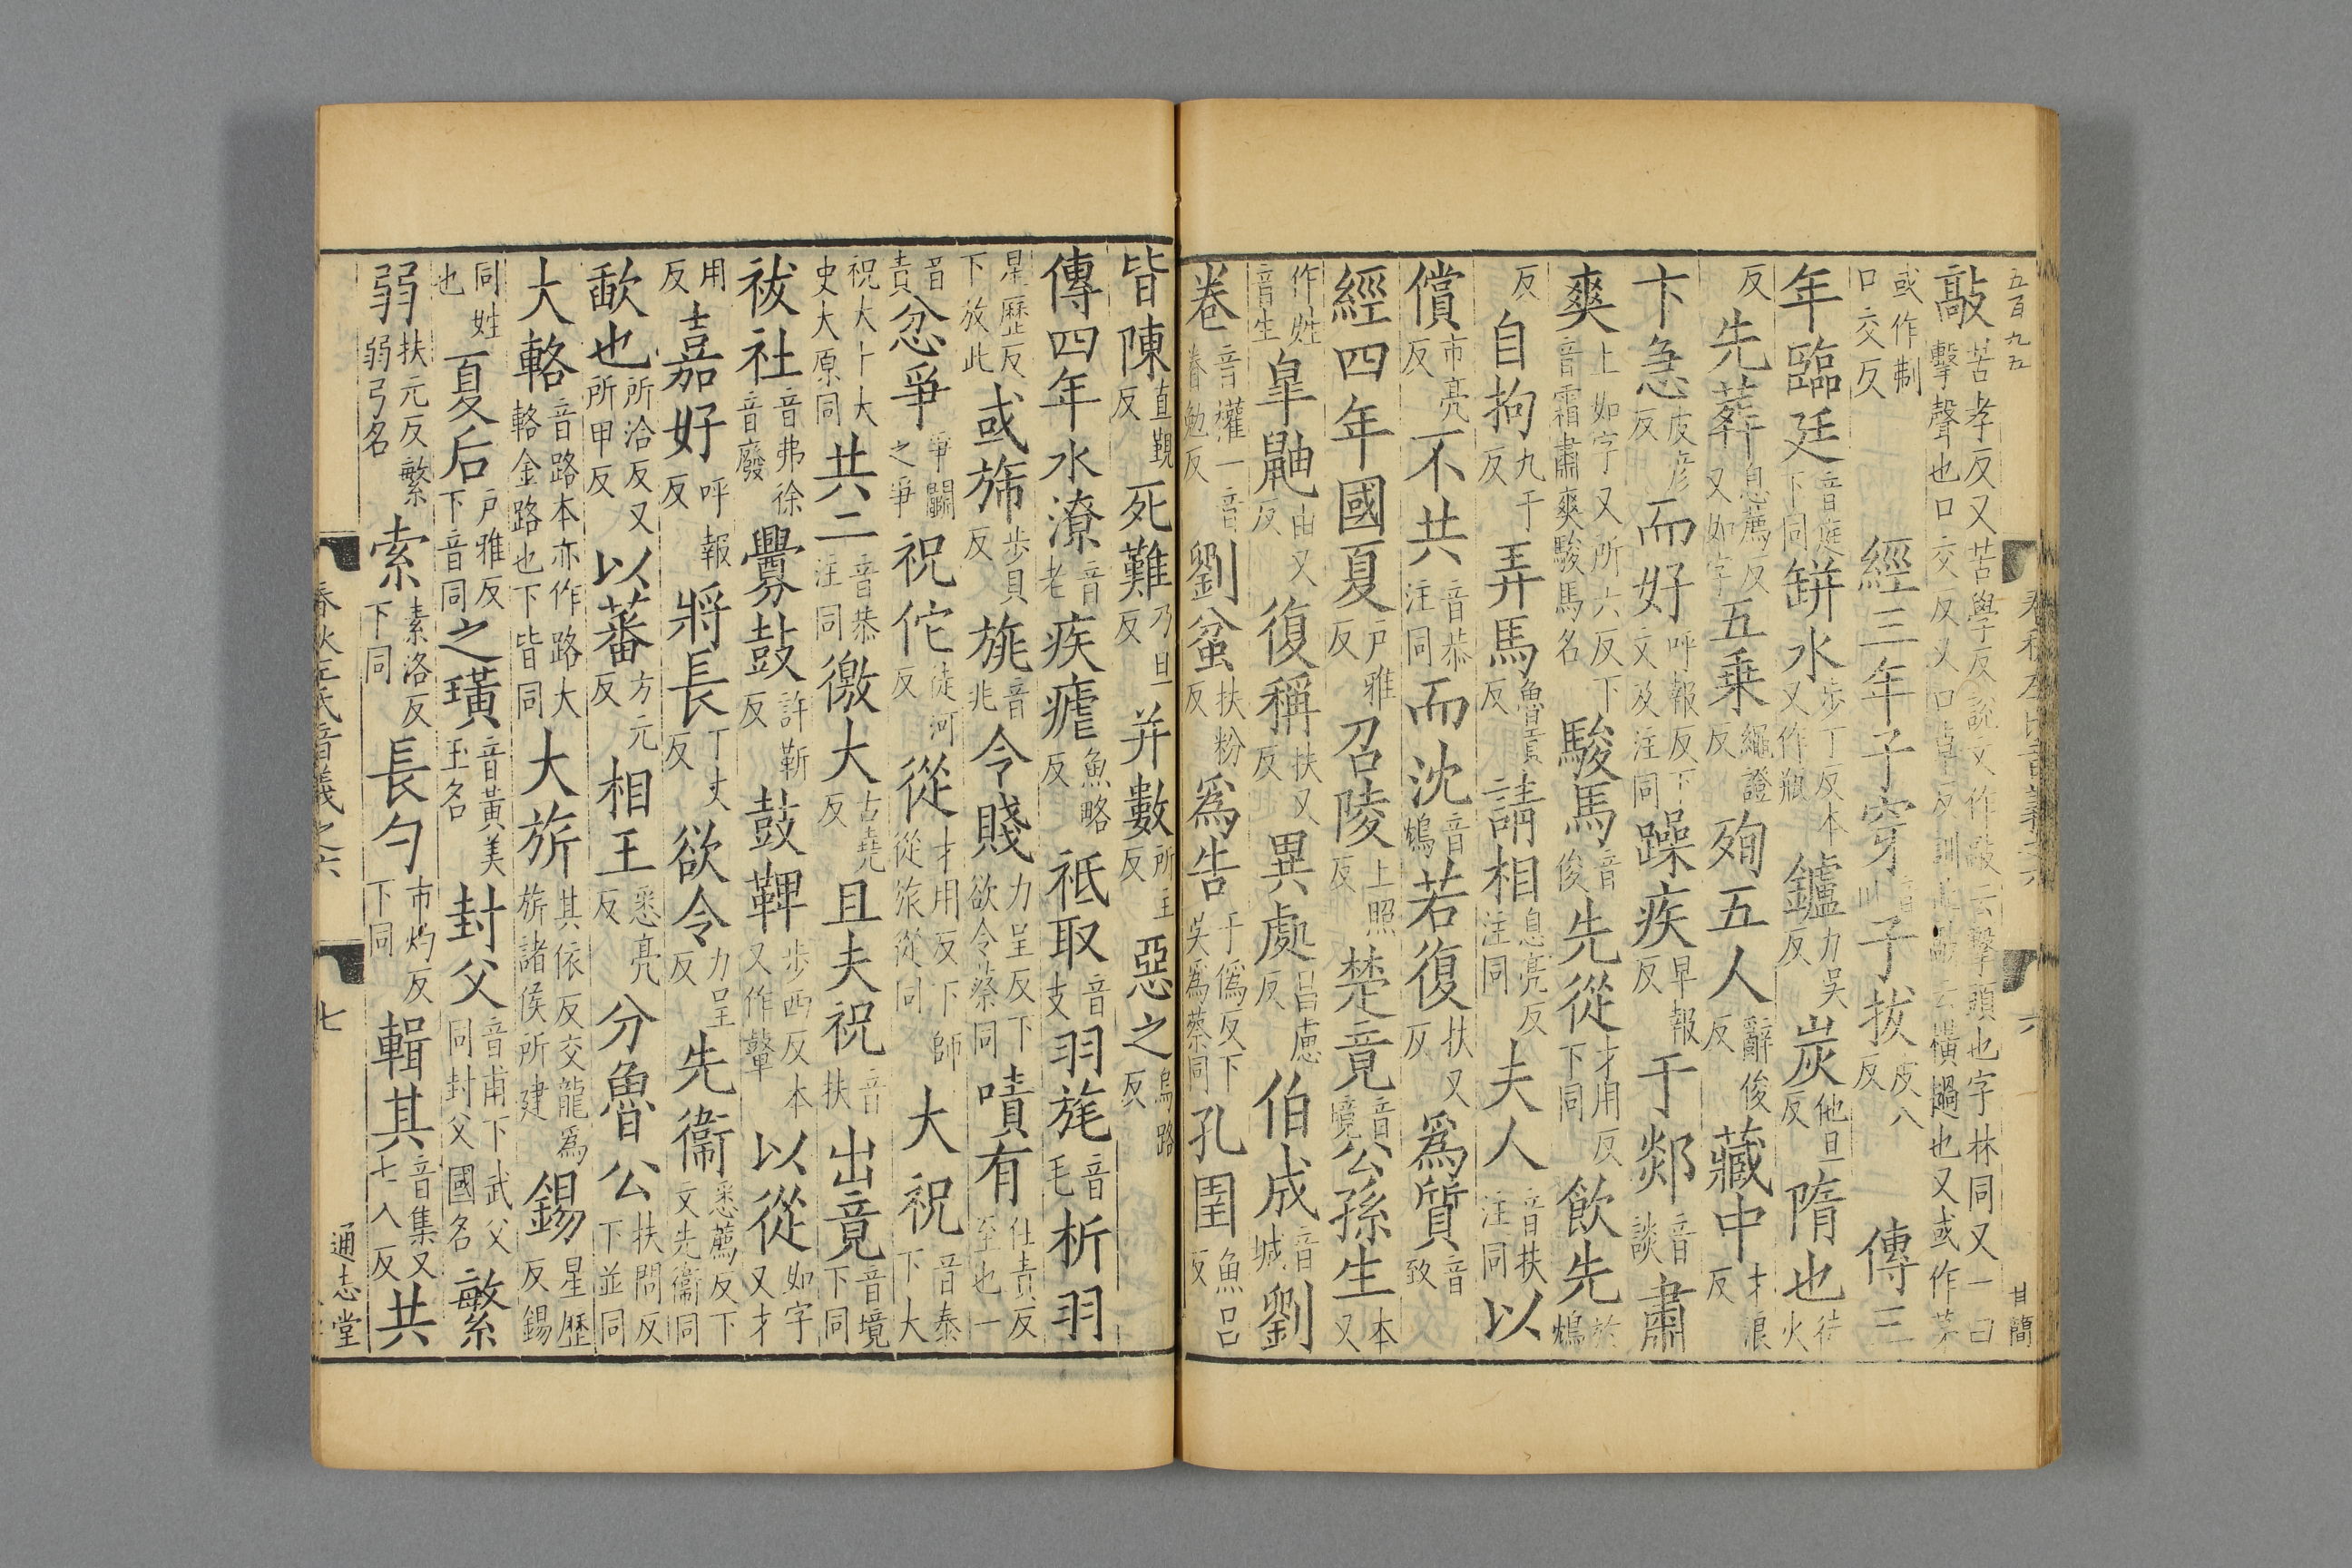 五百九五
敲苦孝反又苦學反說文作敲云擊頭也字林同又一曰擊聲也口交反又口卓反訓從敲云橫撾也又或作𦭝
或作剸口交反 經三年子穿音川子拔皮八反 傳三
年臨廷音庭下同缾水步丁反本又作瓶鑪力吳反炭他旦反隋也徒火
反先葬悉薦反又如字五乗繩證反殉五人辭俊反藏中才浪反
卞急皮彦反而好呼報反下文及注同躁疾早報反于郯音談肅
爽上如字又所六反下音霜肅爽駿馬名駿馬音俊先從才用反下同飲先於鴆
反自拘九于反弄馬魯貢反請相息亮反注同夫人音扶注同以
償市亮反不共音恭注同而沈音鴆若復扶又反爲質音致
經四年國夏戶雅反召陵上照反楚竟音境公孫生本又
作姓音生皐鼬由又反復稱扶又反異處昌慮反伯成音城劉
卷音權一音眷勉反劉蚠扶粉反爲告于僞反下吳爲蔡同孔圉魚呂反
春秋左氏音義之六 六 甘簡
皆陳直覲反死難乃旦反并數所主反惡之烏路反
傳四年水潦音老疾瘧魚略反祗取音支羽旄音毛析羽
星歷反下放此或旆步貝反旐音兆令賤力呈反下欲令蔡同嘖有仕責反至也一
音責忿爭爭鬭之爭祝佗徒河反從才用反下師從旅從同大祝音泰下大
祝大卜大史大原同共二音恭注同徼大古堯反且夫祝音扶出竟音境下同
祓社音弗徐音廢釁鼓許靳反鼓鞞步西反本又作鼙以從如字又才
用反嘉好呼報反將長丁丈反欲令力呈反先衞悉薦反下文先衞同
歃也所洽反又所甲反以蕃方元反相王悉亮反分魯公扶問反下並同
大輅音路本亦作路大輅金路也下皆同大旂其依反交龍爲旂諸侯所建錫星歷反錫
同姓也夏后戶雅反下音同之璜音黃美玉名封父音甫下武父同封父國名繁
弱扶元反繁弱弓名索素洛反下同長勺市灼反下同輯其音集又七入反共
春秋左氏音義之六 七 通志堂